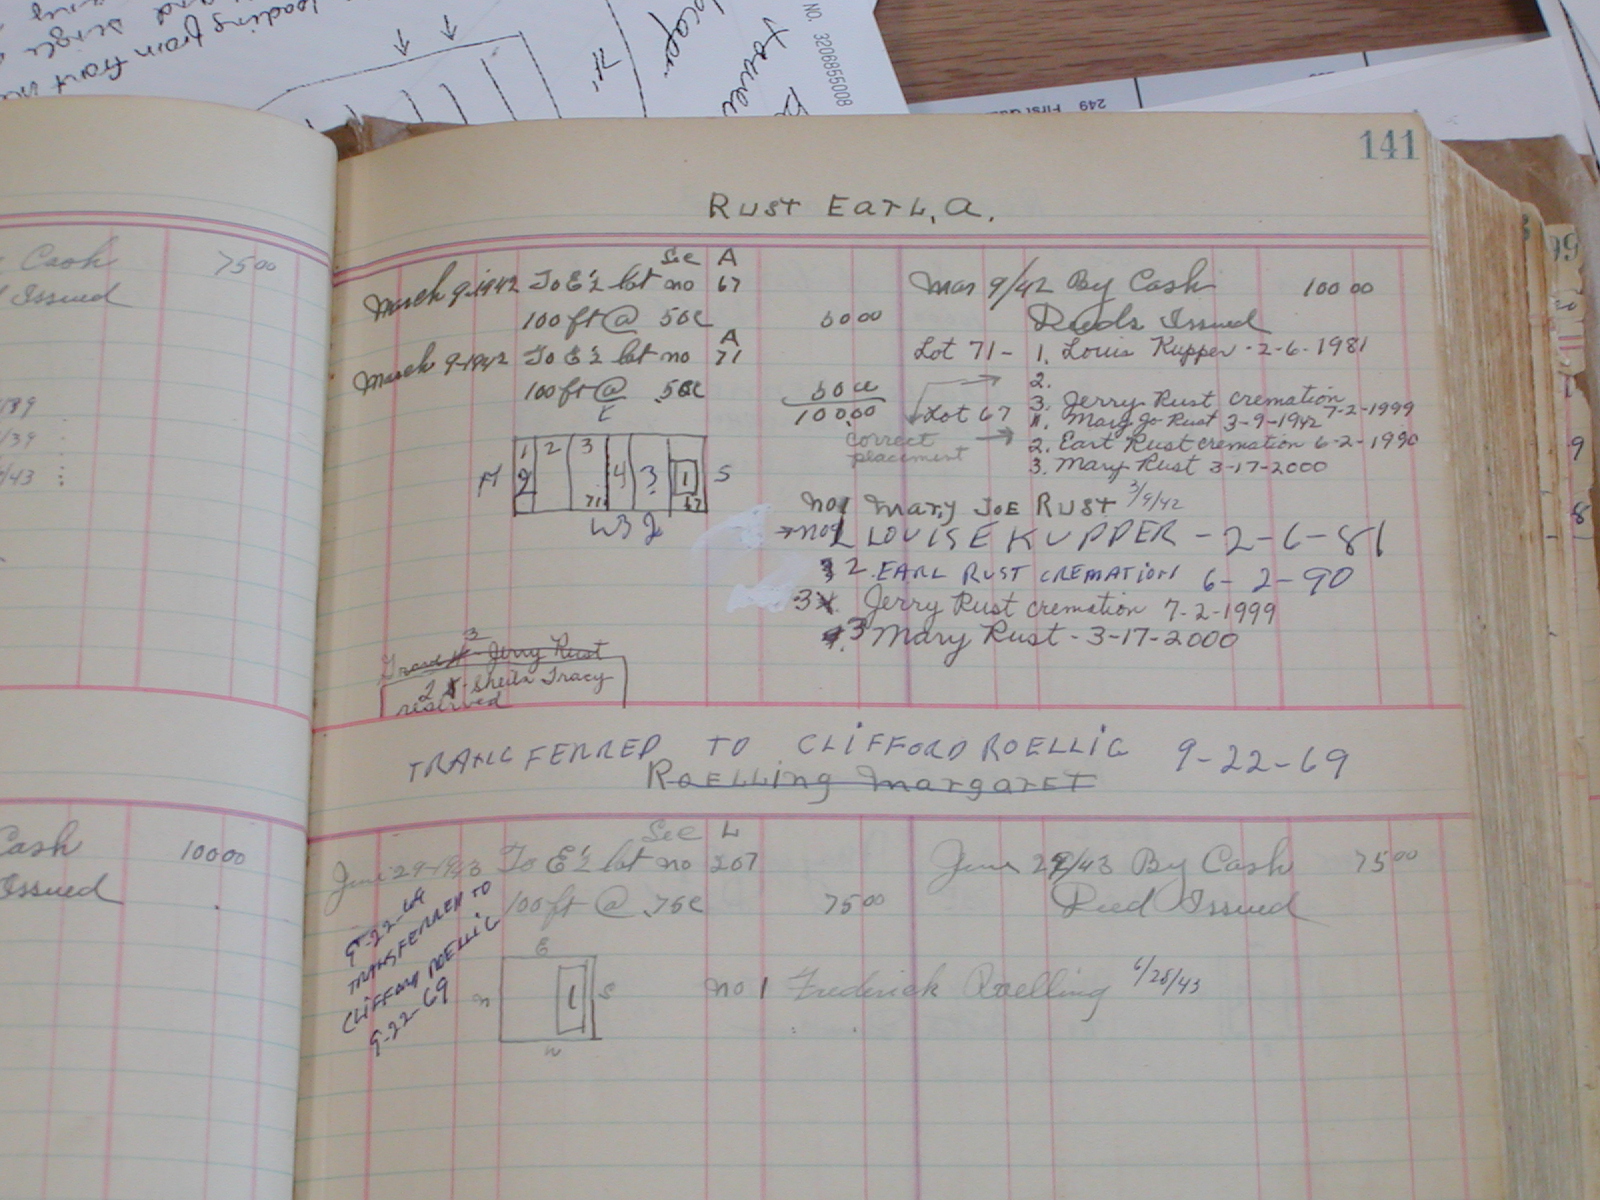 NO. 3206855008
loading from front
249 First
141
Rust Earl, A.
Cash 75 00
Issued
Sec A
March 9-1942 To E½ lot no 67
100 ft @ 50c 50 00
A
March 9-1942 To E½ lot no 71
100 ft @ 50c 50 00
100.00
Mar 9/42 By Cash 100 00
Deeds Issued
Lot 71 - 1. Louis Kupper - 2-6-1981
2.
3. Jerry Rust cremation 7-2-1999
Lot 67 1. Mary Jo Rust 3-9-1942
correct placement
2. Earl Rust cremation 6-2-1990
3. Mary Rust 3-17-2000
E
1 2 3 4 3 1 S
2 71 67
W
no 1 Mary Joe Rust 3/9/42
no 1 LOUISE KUPPER - 2-6-81
2. EARL RUST CREMATION 6-2-90
3. Jerry Rust cremation 7-2-1999
3 Mary Rust - 3-17-2000
Grave 3 - Jerry Rust
2 - Sheila Tracy
reserved
TRANSFERRED TO CLIFFORD ROELLIG 9-22-69
Roelling Margaret
Sec L
June 29-1943 To E½ lot no 207
100 ft @ .75c 75 00
June 29/43 By Cash 75 00
Deed Issued
Cash 100 00
Issued
9-22-69
TRANSFERRED TO
CLIFFORD ROELLIG
9-22-69
E
n 1 S
w
no 1 Frederick Roelling 6/28/43